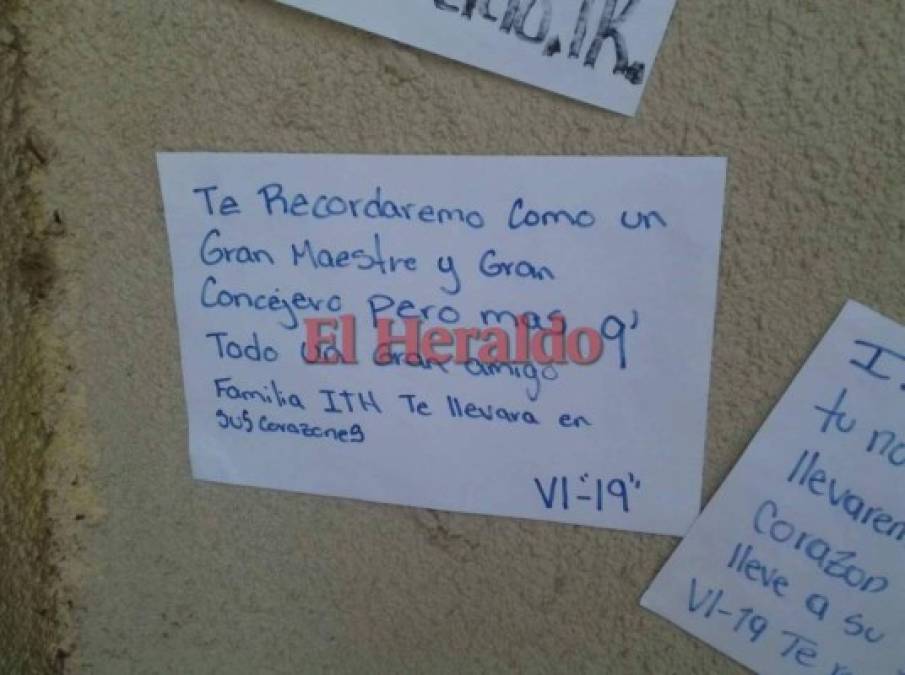 IK.
Te Recordaremo Como un
Gran Maestre y Gran
Concéjero Pero mas q'
Todo un Gran amigo
Familia ITH Te llevara en
sus Corazones
VI-"19"
El Heraldo
I.
tu no
llevarem
Corazon
lleve a su
VI-19 Te